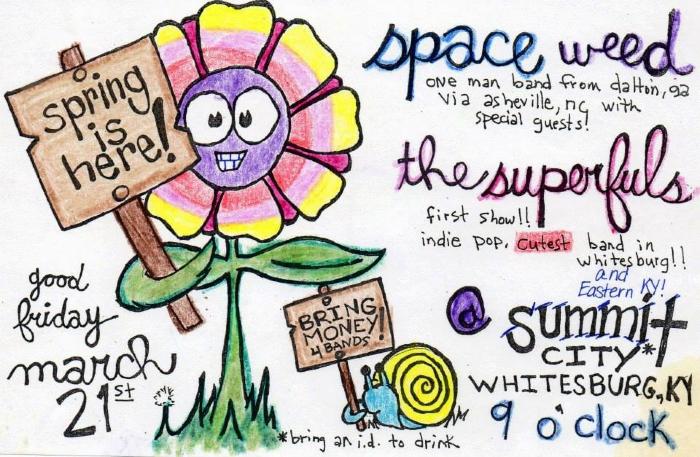 spring
is
here!
space weed
one man band from dalton, ga
via asheville, nc with
special guests!
the superfuls
first show!!
indie pop. cutest band in
whitesburg!!
and
Eastern KY!
good
friday
march
21st
BRING
MONEY!
4 BANDS
@ summit
CITY*
WHITESBURG, KY
9 o'clock
*bring an i.d. to drink